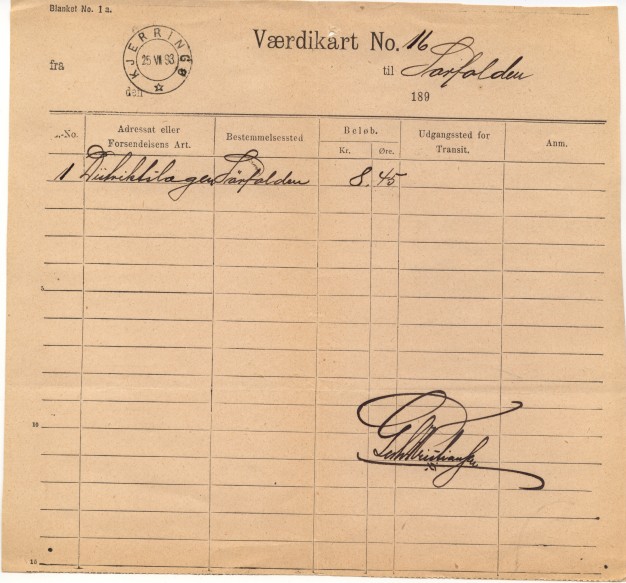 Blanket No. 1 a.
Værdikart No. 16
KJERRINGØ
25 VII 93
fra
til Sørfolden
den
189
-No.
Adressat eller
Forsendelsens Art.
Bestemmelsessted
Beløb.
Kr.
Øre.
Udgangssted for
Transit.
Anm.
1 Distriktslægen Sørfolden 8. 45
5
10
15